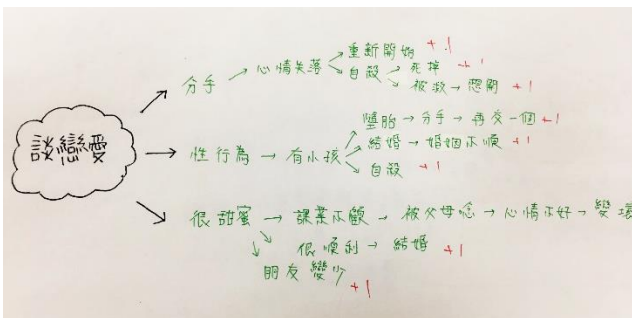 談戀愛
分手 → 心情失落 → 重新開始 +1
自殺 → 死掉 +1
被救 → 想開 +1
性行為 → 有小孩 → 墮胎 → 分手 → 再交一個 +1
結婚 → 婚姻不順 +1
自殺 +1
很甜蜜 → 課業不顧 → 被父母唸 → 心情不好 → 變壞
很順利 → 結婚 +1
朋友變少 +1